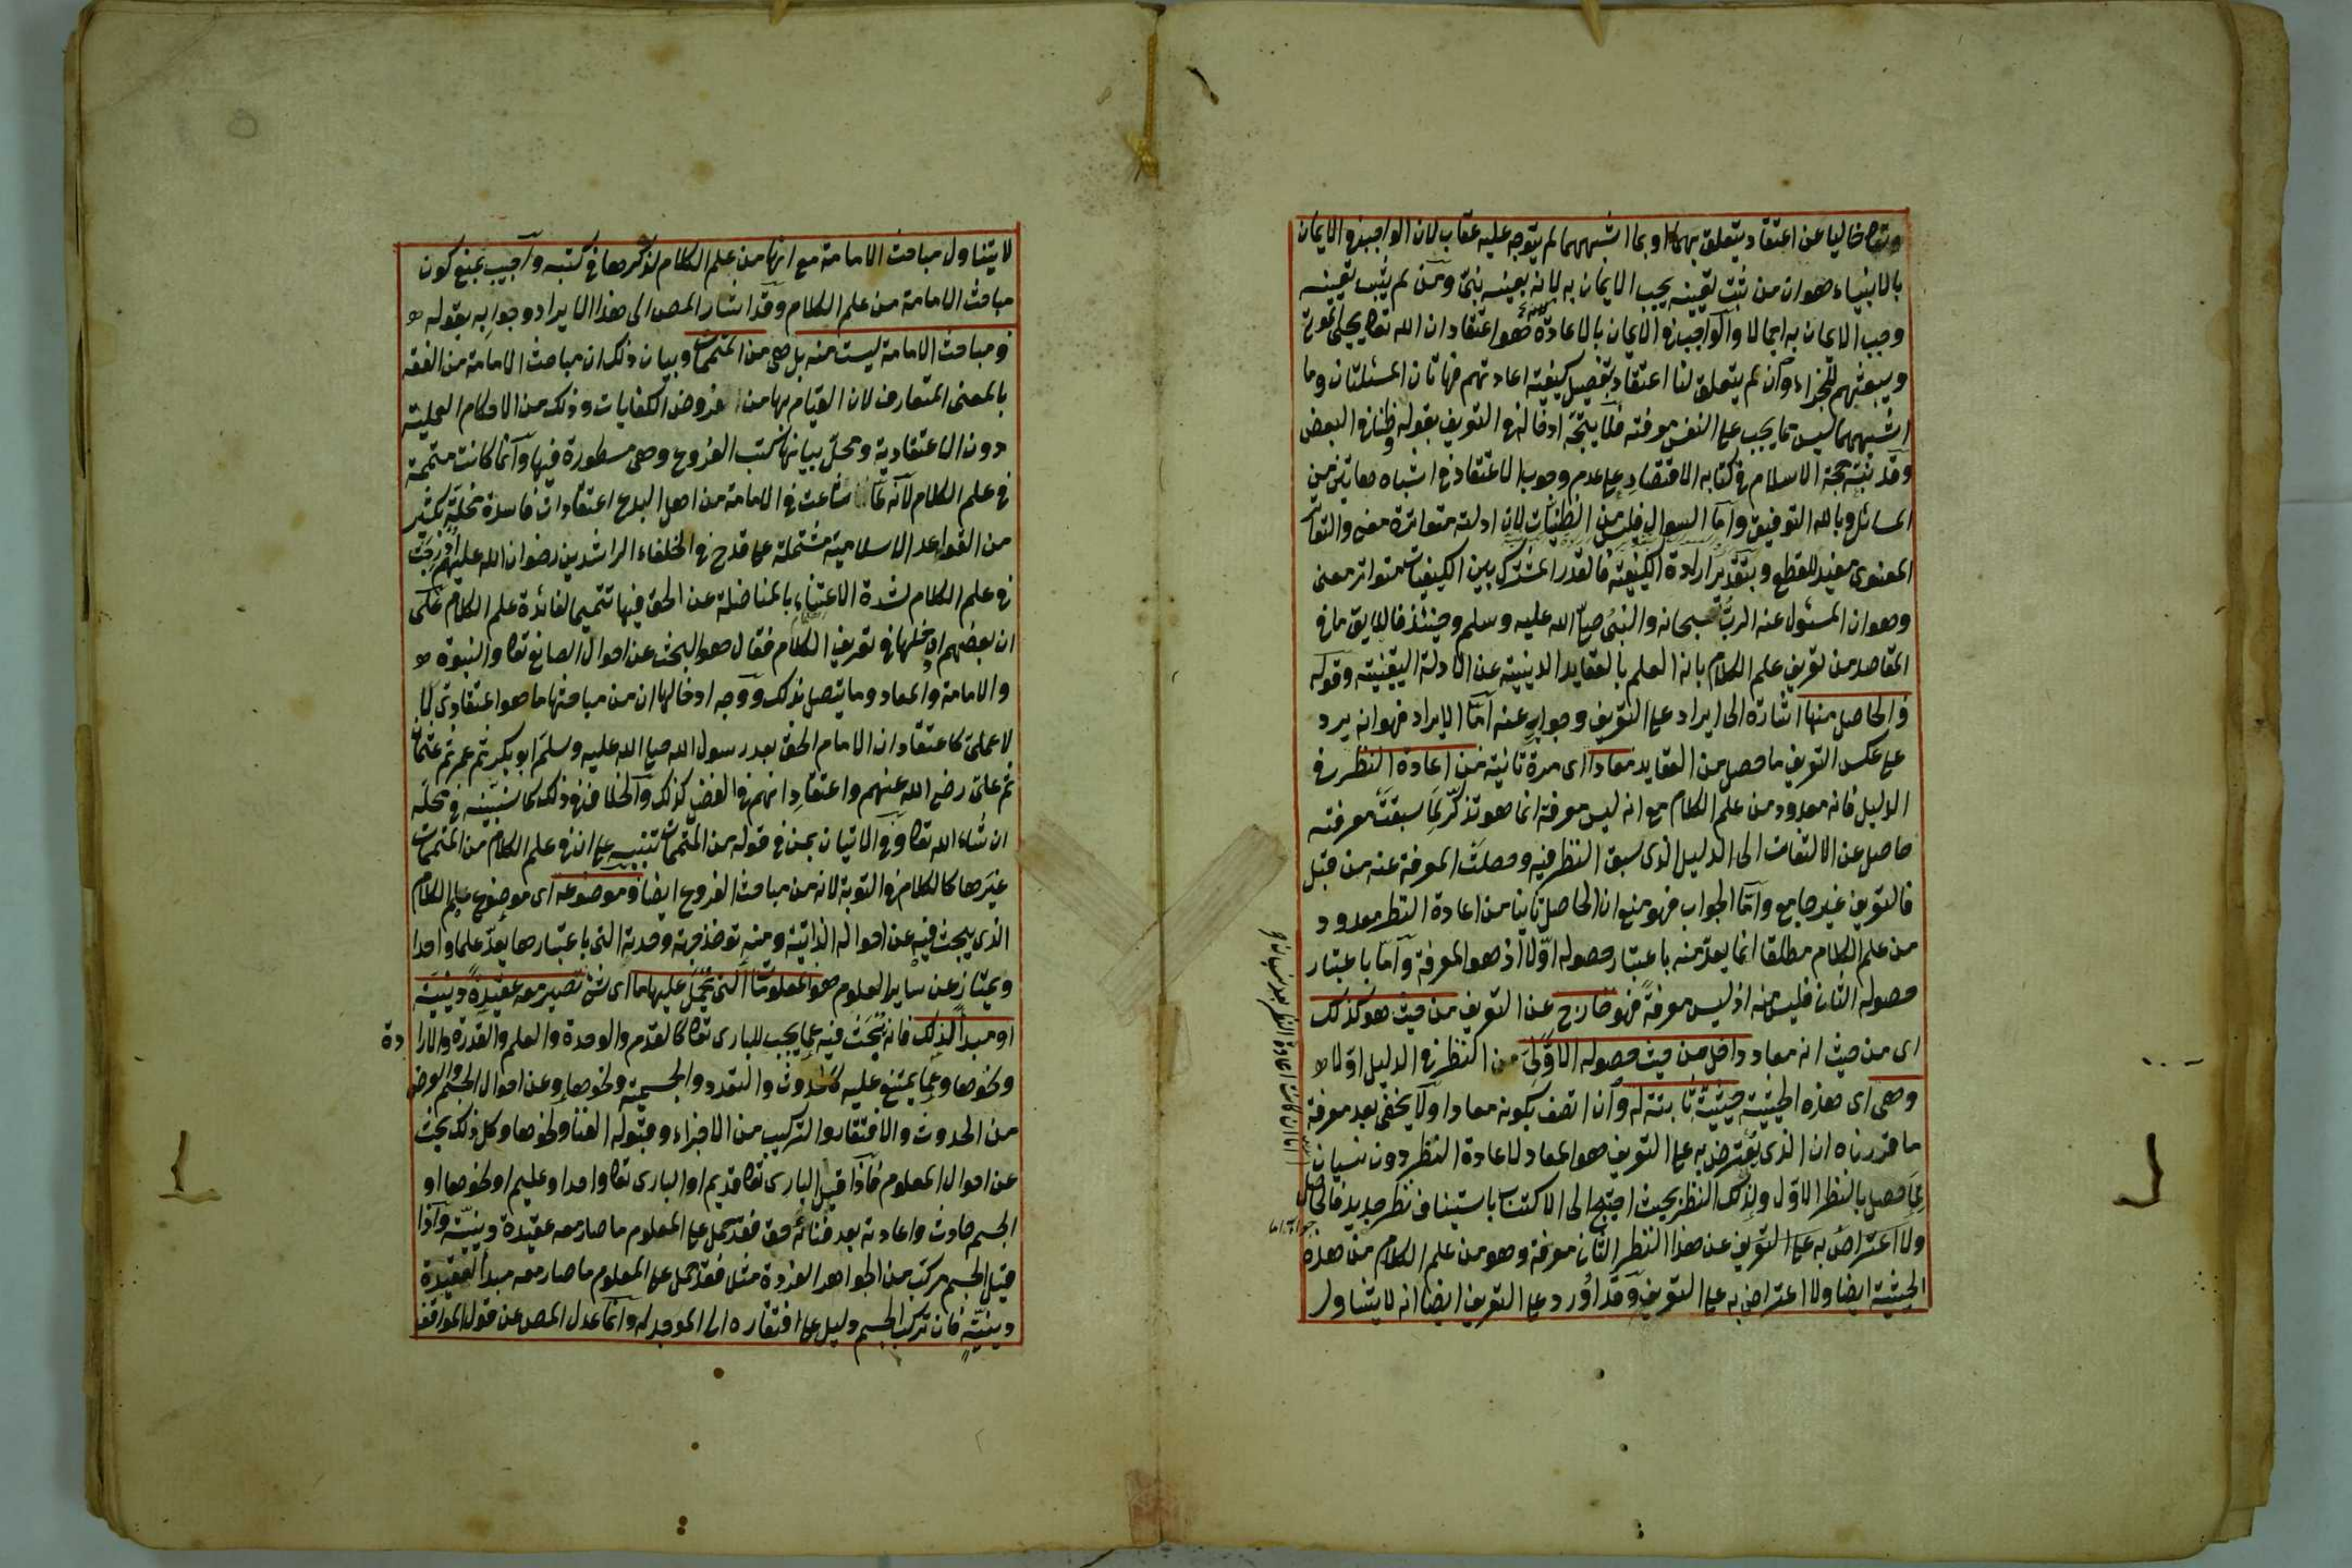 وتعالى خاليا عن اعتقاد يتعلق بهما او بما اشبههما لم يتوجه عليه عقاب لان الواجب في الايمان
بالانبياء هو ان من ثبت تعيينه يجب الايمان به لانه بعينه نبي ومن لم يثبت تعيينه
وجب الايمان به اجمالا والواجب في الايمان بالاعادة هو اعتقاد ان الله تعالى يحيي الموتى
ويبعثهم للجزاء وان لم يتعلق لنا اعتقاد بتفصيل كيفية اعادتهم فهاتان المسئلتان وما
اشبههما ليس مما يجب على النفس معرفته فلا يتجه ادخاله في التعريف بقوله وظنا في البعض
وقد نبه حجة الاسلام في كتابه الاقتصاد على عدم وجوب الاعتقاد في اشباه هاتين من
المسائل وبالله التوفيق واما السوال فليس من الظنيات لان ادلته متواترة معنى والتواتر
المعنوي مفيد للقطع وبتقدير ارادة الكيفية فالقدر المشترك بين الكيفيات متواتر معنى
وهو ان المسئول عنه الرب سبحانه والنبي صلى الله عليه وسلم وحينئذ فاللايق ما في
المقاصد من تعريف علم الكلام بانه العلم بالعقايد الدينية عن الادلة اليقينية وقوله
والحاصل منها اشارة الى ايراد على التعريف وجواب عنه اما الايراد فهو انه يرد
على عكس التعريف ما حصل من العقايد معادا اى مرة ثانية من اعادة النظر في
الدليل فانه معدود من علم الكلام مع انه ليس معرفة انما هو تذكر لما سبقت معرفته
حاصل عن الالتفات الى الدليل الذى سبق النظر فيه وحصلت المعرفة عنه من قبل
فالتعريف غير جامع واما الجواب فهو منع ان الحاصل ثانيا من اعادة النظر معدود
من علم الكلام مطلقا انما يعد منه باعتبار حصوله اولا اذ هو المعرفة واما باعتبار
حصوله الثاني فليس منه اذ ليس معرفة فهو خارج عن التعريف من حيث هو كذلك
اى من حيث انه معاد داخل من حيث حصوله الاولى من النظر في الدليل اولا
وهى اى هذه الحيثية حيثية ثابتة له وان اتصف بكونه معادا ولا يخفى بعد معرفة
ما قررناه ان الذى يعترض به على التعريف هو المعاد لاعادة النظر دون نسيان
لما حصل بالنظر الاول ولذلك النظر بحيث احتيج الى الاكتساب باستيناف نظر جديد فالحاصل
ولا اعتراض به على التعريف عن هذا النظر الثاني معرفة وهو من علم الكلام من هذه
الحيثية ايضا ولا اعتراض به على التعريف وقد اورد على التعريف ايضا انه لا يتناول
لا يتناول مباحث الامامة مع انها من علم الكلام لذكرها في كتبه واجيب بمنع كون
مباحث الامامة من علم الكلام وقد اشار المص الى هذا الايراد وجوابه بقوله
ومباحث الامامة ليست منه بل هى من المتممات وبيان ذلك ان مباحث الامامة من الفقه
بالمعنى المتعارف لان القيام بها من فروض الكفايات وذلك من الاحكام العملية
دون الاعتقادية ومحل بيانها كتب الفروع وهى مسطورة فيها وانما كانت متممة
في علم الكلام لانه لما شاعت في الامامة من اهل البدع اعتقادات فاسدة مخلة بكثير
من القواعد الاسلامية مشتملة على قدح في الخلفاء الراشدين رضوان الله عليهم ادرجت
في علم الكلام لشدة الاعتناء بالمناضلة عن الحق فيها تتميما لفائدة علم الكلام على
ان بعضهم ادخلها في تعريف الكلام فقال هو البحث عن احوال الصانع تعالى والنبوة
والامامة والمعاد وما يتصل بذلك ووجه ادخالها ان من مباحثها ما هو اعتقادى لا
لا عملى كاعتقاد ان الامام الحق بعد رسول الله صلى الله عليه وسلم ابو بكر ثم عمر ثم عثمان
ثم على رضى الله عنهم واعتقاد انهم في الفضل كذلك والخلاف في ذلك كما سنبينه في محله
ان شاء الله تعالى وفي الاتيان بمن في قوله من المتممات تنبيه على ان في علم الكلام من المتممات
غيرها كالكلام في التوبة لانه من مباحث الفروع ايضا وموضوعه اى موضوع علم الكلام
الذى يبحث فيه عن احواله الذاتية ومنه توخذ جهة وحدته التى باعتبارها يعد علما واحدا
ويمتاز عن ساير العلوم هو المعلومات التى يحمل عليها ما اى شئ تصير معه عقيدة دينية
او مبدا لذلك فانه يبحث فيه عما يجب للبارى تعالى كالقدم والوحدة والعلم والقدرة والارادة
ونحوها وعما يمتنع عليه كالحدوث والتعدد والجسمية ونحوها وعن احوال الجسم والعرض
من الحدوث والافتقار والتركيب من الاجزاء وقبوله الفنا ونحوها وكل ذلك بحث
عن احوال المعلوم فاذا قيل البارى تعالى قديم او البارى تعالى واحد او عليم او نحوها او
الجسم حادث واعادته بعد فنائه حق فقد حمل على المعلوم ما صار معه عقيدة دينية واذا
قيل الجسم مركب من الجواهر الفردة مثلا فقد حمل على المعلوم ما صار معه مبدأ لعقيدة
دينية فان تركب الجسم دليل على افتقاره الى الموجد له وانما عدل المص عن قول المواقف